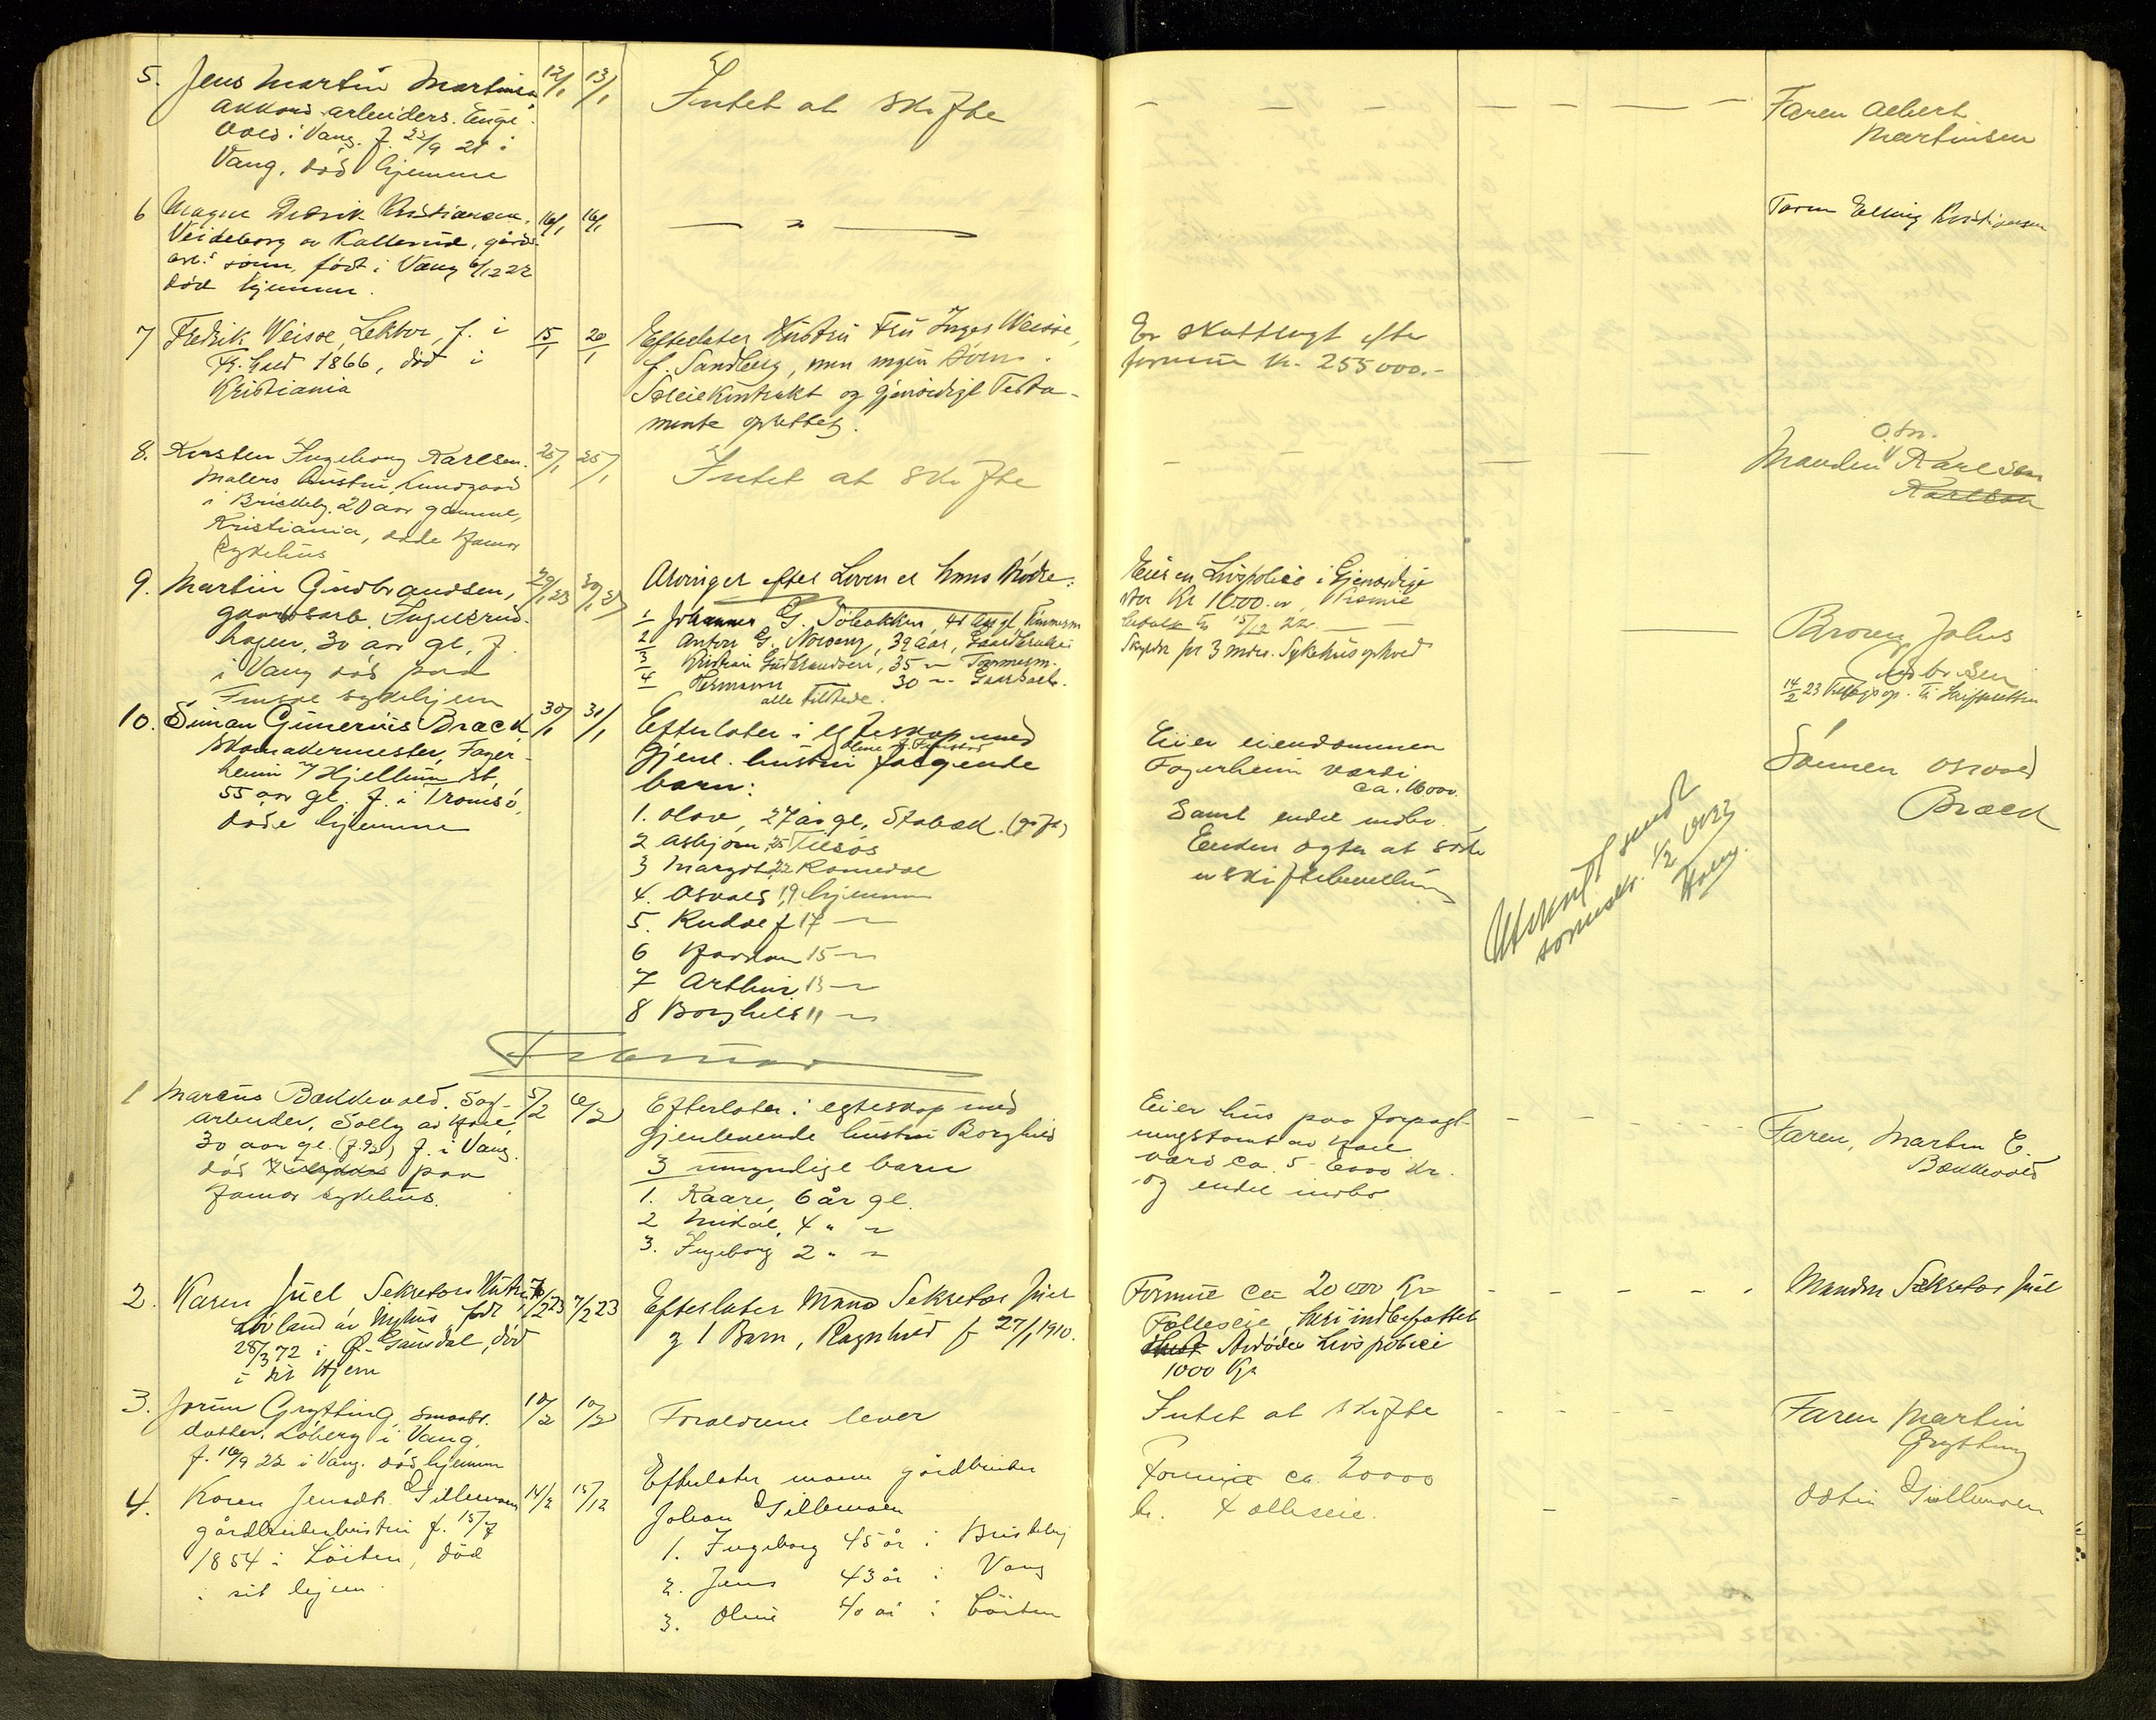 5. Jens Martin Martinsen 12/1 13/1 Intet at skifte Faren Albert
akkordarbeiders. Enge Martinsen
vold i Vang. f. 22/9 21 i
Vang, død hjemme
6 Magne Didrik Kristiansen. 16/1 16/1 — " — Faren Elling Kristiansen
Veideborg av Kallerud, gårds
arb.s sønn, født i Vang 6/12 22
død hjemme.
7 Fredrik Weisse, Lektor, f. i 15/1 20/1 Efterlater Hustru Fru Inga Weisse, Er skattlagt efter
Fr. hald 1866, død i f. Sandberg, men ingen Børn. formue kr. 255 000.-
Kristiania Særeiekontrakt og gjensidigt Testa-
mente oprettet.
8. Kirsten Ingeborg Karlsen. 25/1 25/1 Intet at skifte Manden O. Kr. Karlsen
Malers hustru Lundgaard Karlson
i Briskeby. 20 aar gammel,
Kristiania, døde Hamar
Sykehus
9. Martin Gudbrandsen, 29/1 23 30/1 23 Arvinger efter Loven er hans Brødre: Eier en Livspolice i Gjensidige
gaardsarb. Ingelsrud- 1 Johannes G. Søbakken, 41 Aar gl. Tømmerm stor Kr 1000.00, Præmie
hagen, 30 aar gl, f. 2 Anton G. Noreng, 39 Aar, Gaardbruker betalt til 15/12 22. Broren Johs
i Vang død paa 3 Kristian Gudbrandsen, 35 — Tømmerm. Skylder for 3 mdrs. Sykehusophold Gudbrandsen
Furnes sykehjem 4 Hermann — 30 — Gaardsarb. 14/2 23
alle tilstede.
10. Simon Gunerius Bræck 30/1 31/1 Efterlater i egteskap med
Skomakermester, Fager- gjenl. hustru Oline f. følgende Eier eiendommen Sønnen Osvald
heim v/ Hjellum st, barn: Fagerheim værdi Bræck
55 aar gl. f. i Tromsø, 1. Olav, 27 år gl, Stabæk. (gift) ca. 16000.
døde hjemme 2 Asbjørn, 25 Samt endel indbo. Utskrift sendt
3 Margit, 22 Romedal Enken agter at søke sorenskr. 1/2 1923
4. Osvald 19 hjemme uskiftebevilling
5. Rudolf 17 —
6 Haakon 15 —
7 Arthur 13 —
8 Borghild 11 —
Februar
1 Marcus Bækkevold. Sag- 5/2 6/2 Efterlater i egteskap med Eier hus paa forpagt-
arbeider, Solly av Hole gjenlevende hustru Borghild ningstomt av Hole Faren, Martin E.
30 aar gl. (f. 92) f. i Vang. 3 umyndige barn værd ca. 5-6000 kr. Bækkevold
død paa 1. Kaare, 6 år gl. og endel indbo
Hamar sykehus. 2 Mikal, 4 " —
3. Ingeborg 2 " —
2. Karen Juel Sekretærs Hustru 7/2 23 7/2 23 Efterlater Mand Sekretær Juel Formue ca 20 000 Kr Manden Sekretær Juel
Løvland av Nyhus, født og 1 Barn, Ragnhild f 27/1 1910. Fælleseie, heri indbefattet
28/3 72 i Ø. Gausdal, død Avdødes Livspolice
i sit Hjem 1000 Kr
3. Jorun Grytting, smaabr. 10/2 10/2 Foreldrene lever Intet at skifte Faren Martin
datter, Løberg i Vang, Grytting
f. 16/9 22 i Vang. død hjemme
4. Karen Jensdtr. Gillemoen 14/2 15/12 Efterlater mann gårdbruker Formue ca. 20000
gårdbrukerhustru f. 15/7 Johan Gillemoen kr. Fælleseie. Ostin Gillemoen
1854 i Löiten, död 1. Ingeborg 45 år i Briskeby
i sit hjem. 2. Jens 43 år i Vang
3. Oline 40 år i Löiten